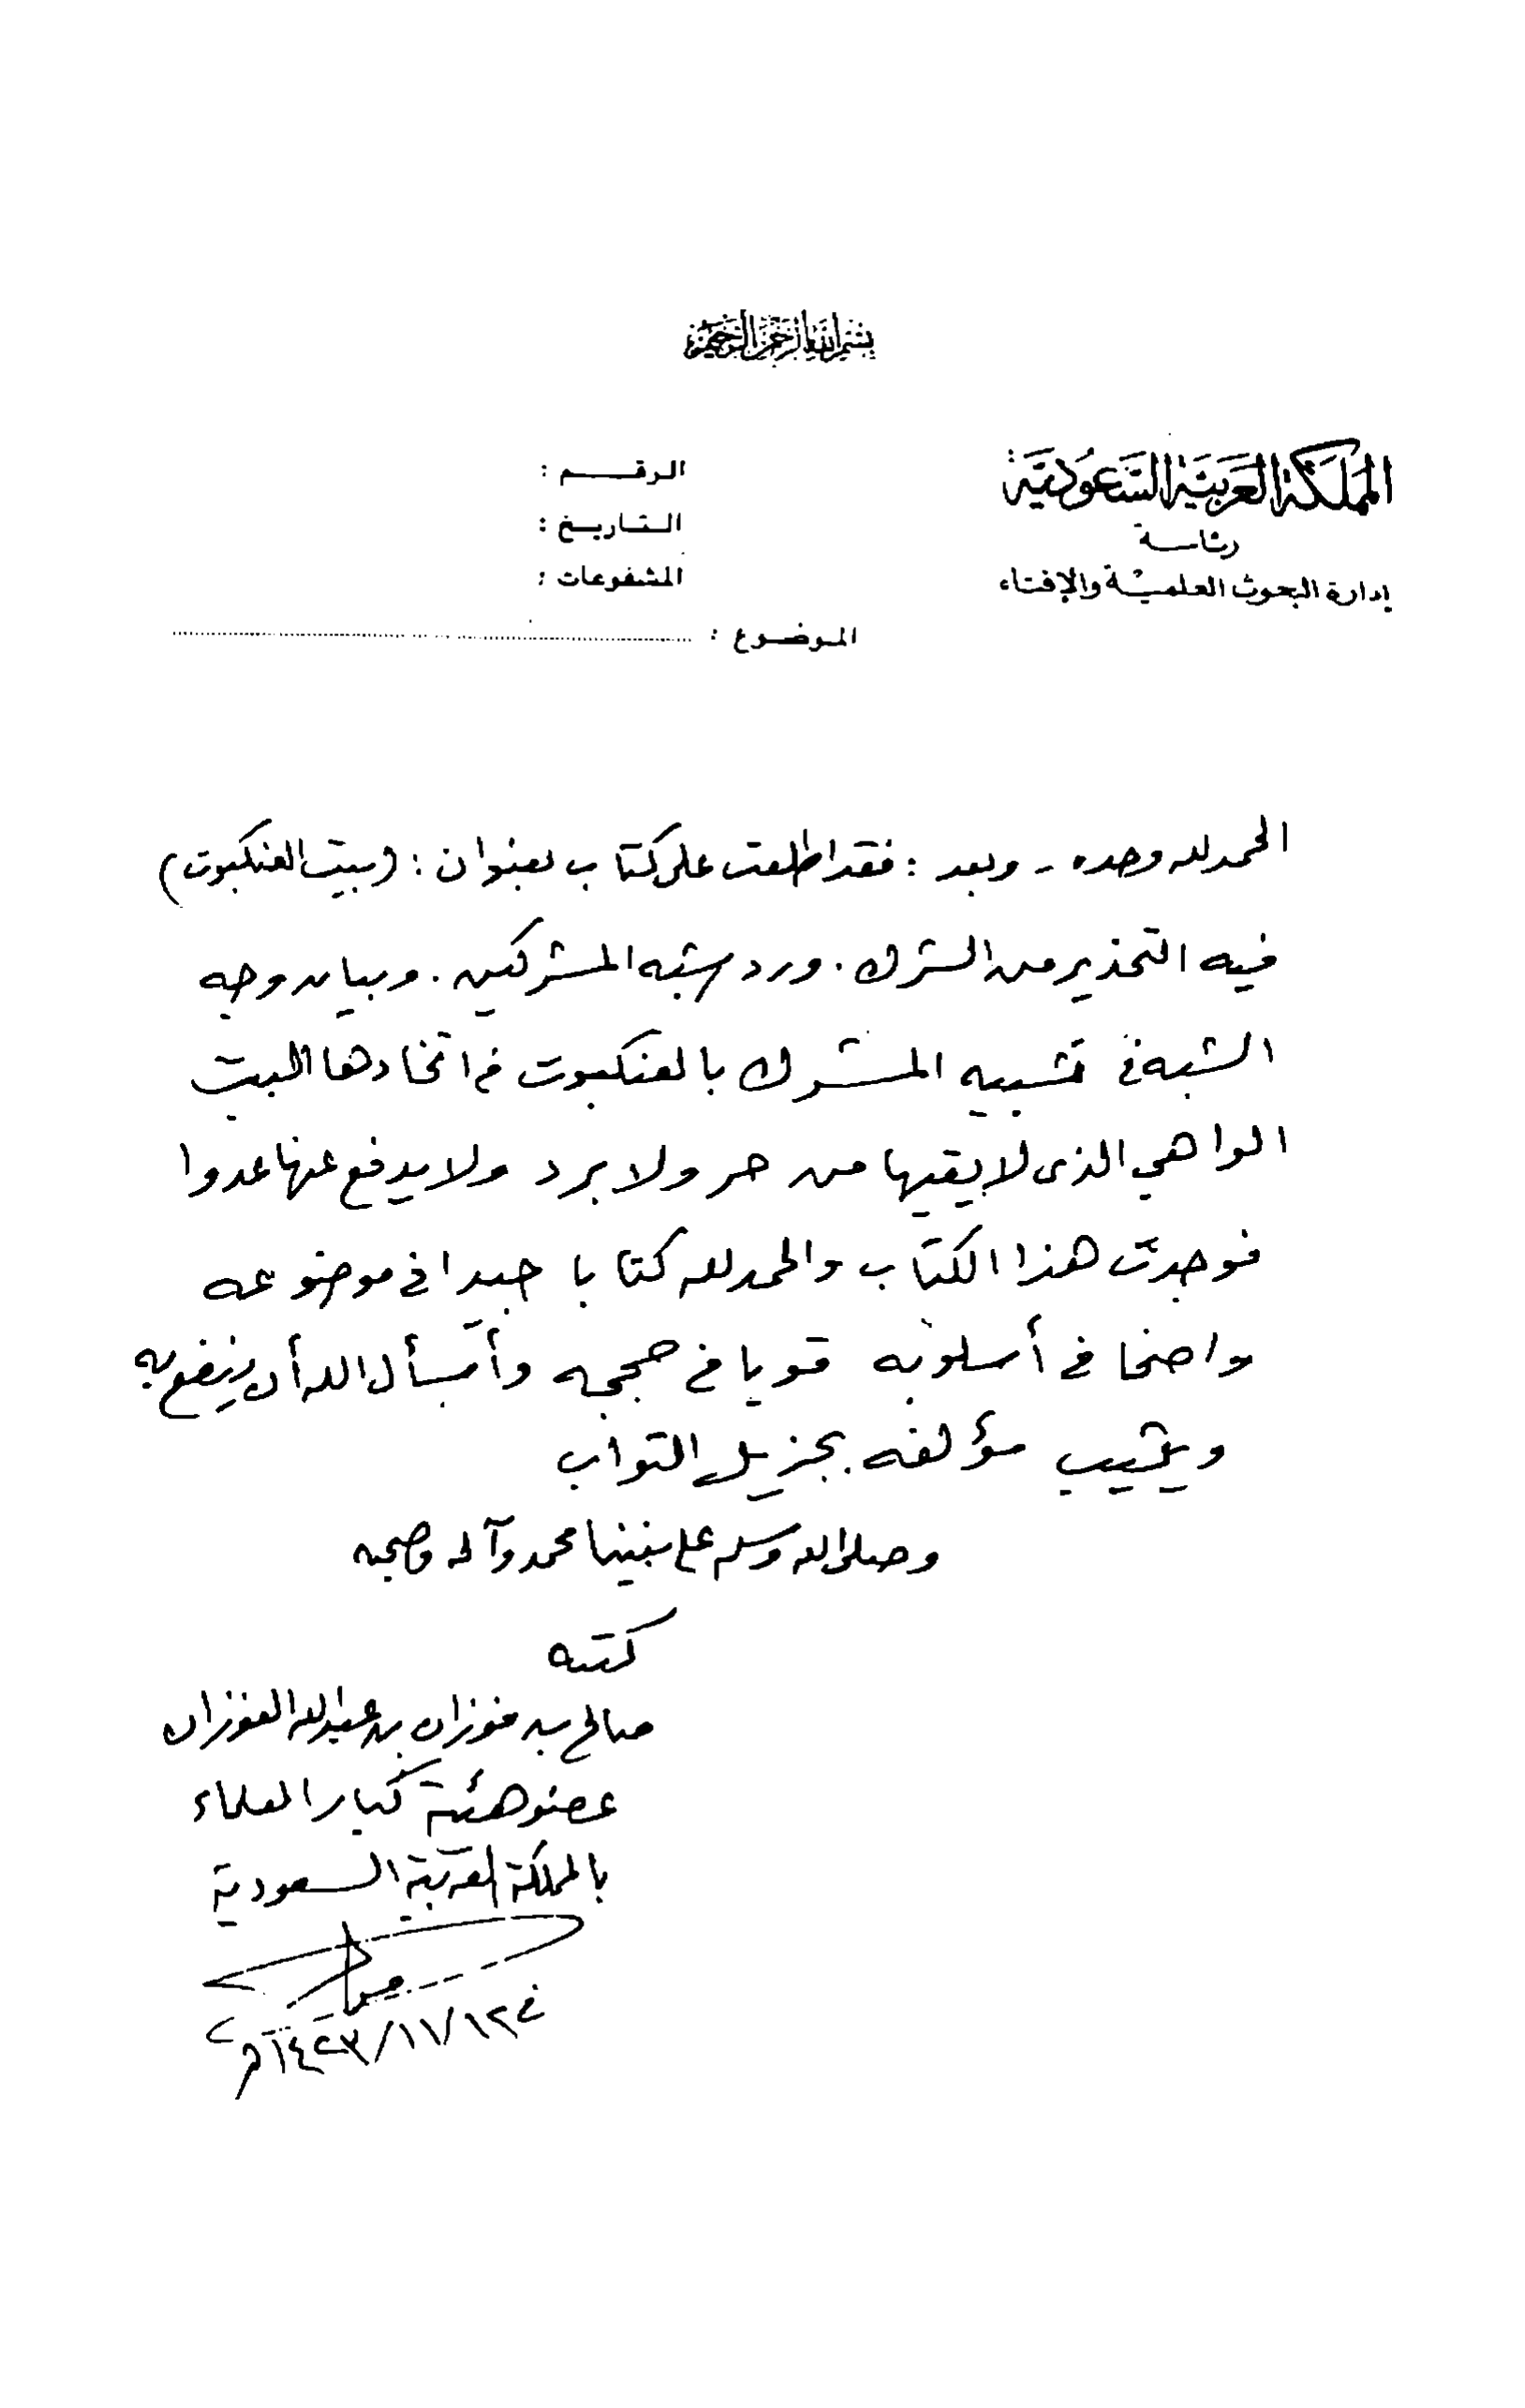 بسم الله الرحمن الرحيم
المملكة العربية السعودية
رئاسة
إدارة البحوث العلمية والإفتاء
الرقم :
التاريخ :
المشفوعات :
الموضوع :
الحمد لله وحده - وبعد : فقد اطلعت على كتاب بعنوان : (بيت العنكبوت)
فيه التحذير من الشرك . ورد شبه المشركين . وبيان وجه
الشبه في تشبيه المشرك بالعنكبوت في اتخاذها البيت
الواهي الذي لا يقيها من حر ولا برد ولا يدفع عنها عدوا
فوجدت هذا الكتاب والحمد لله كتابا جيدا في موضوعه
واضحا في أسلوبه قويا في حججه وأسأل الله أن ينفع به
ويثيب مؤلفه بجزيل الثواب
وصلى الله وسلم على نبينا محمد وآله وصحبه
كتبه
صالح بن فوزان بن عبدالله الفوزان
عضو هيئة كبار العلماء
بالمملكة العربية السعودية
في ١٤٢٣/١١/١٢هـ